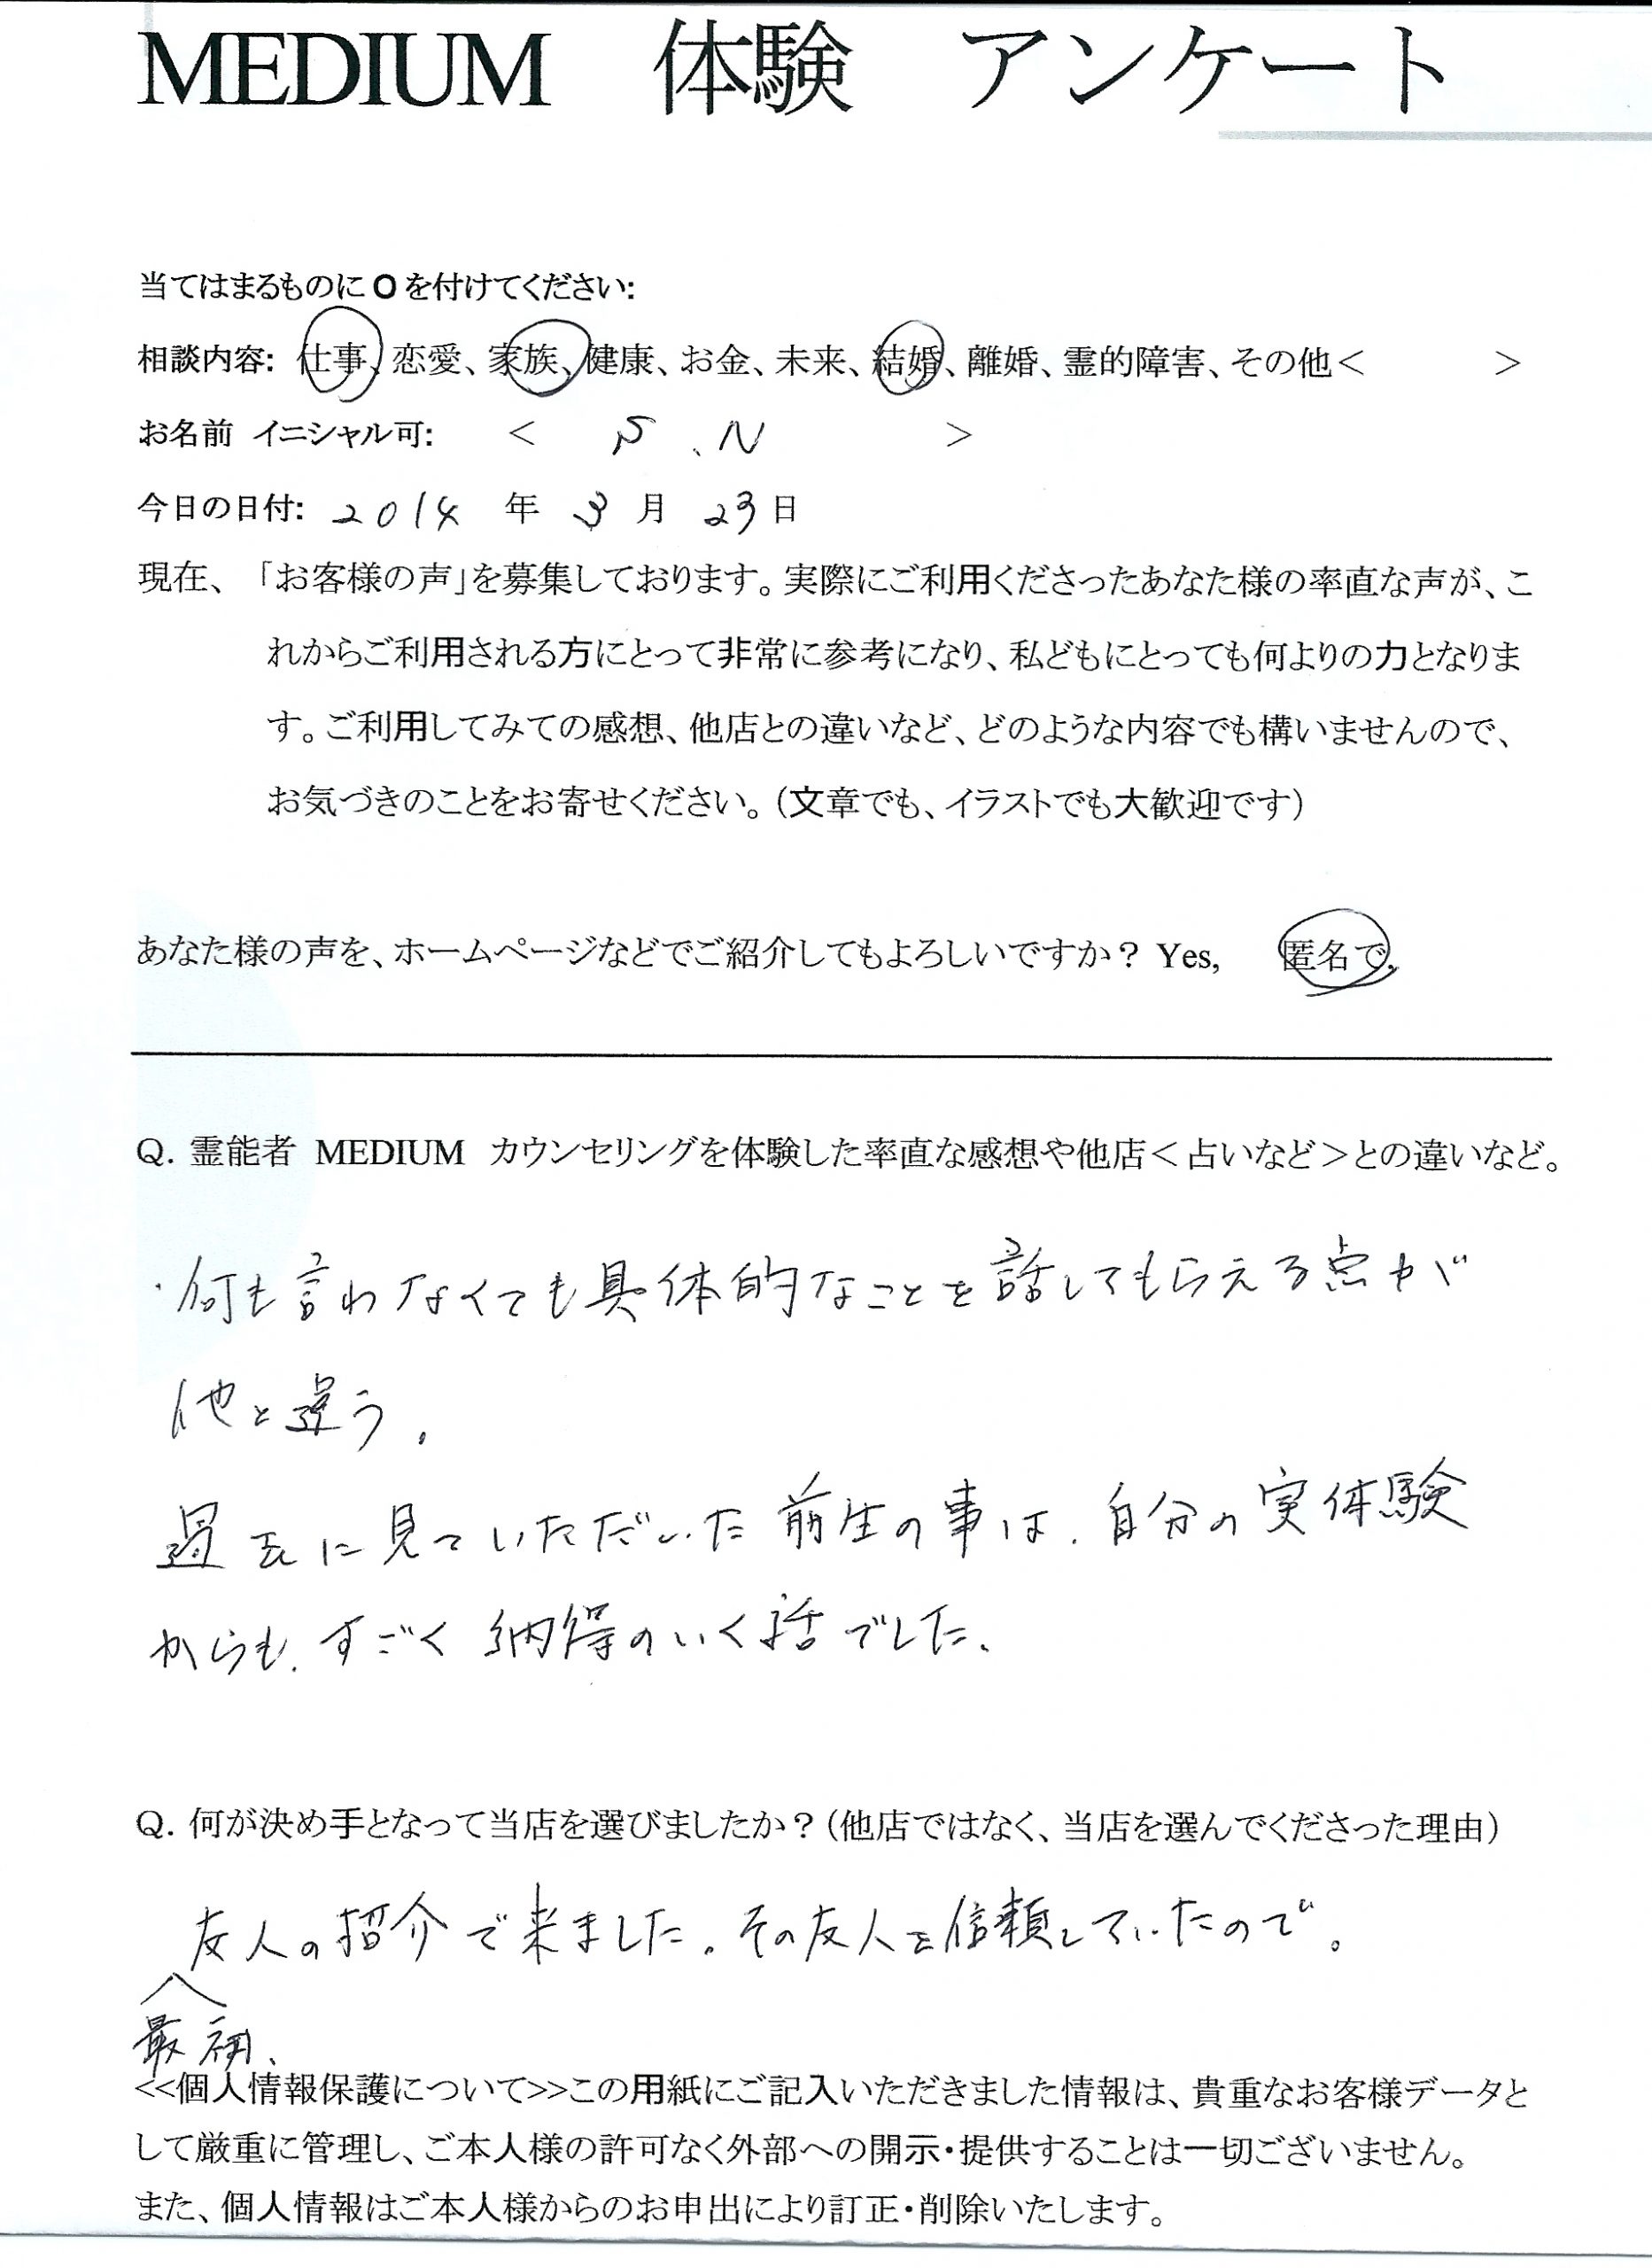 MEDIUM 体験 アンケート
当てはまるものにOを付けてください:
相談内容: 仕事、恋愛、家族、健康、お金、未来、結婚、離婚、霊的障害、その他＜ ＞
お名前 イニシャル可: ＜ S.N ＞
今日の日付: 2014 年 3 月 23 日
現在、「お客様の声」を募集しております。実際にご利用くださったあなた様の率直な声が、こ
れからご利用される方にとって非常に参考になり、私どもにとっても何よりの力となりま
す。ご利用してみての感想、他店との違いなど、どのような内容でも構いませんので、
お気づきのことをお寄せください。（文章でも、イラストでも大歓迎です）
あなた様の声を、ホームページなどでご紹介してもよろしいですか？ Yes, 匿名で,
Q. 霊能者 MEDIUM カウンセリングを体験した率直な感想や他店＜占いなど＞との違いなど。
・何も言わなくても具体的なことを話してもらえる点が
他と違う。
過去に見ていただいた前生の事は、自分の実体験
からも、すごく納得のいく話でした。
Q. 何が決め手となって当店を選びましたか？（他店ではなく、当店を選んでくださった理由）
友人の紹介で来ました。その友人を信頼していたので。
最初、
<<個人情報保護について>>この用紙にご記入いただきました情報は、貴重なお客様データと
して厳重に管理し、ご本人様の許可なく外部への開示・提供することは一切ございません。
また、個人情報はご本人様からのお申出により訂正・削除いたします。